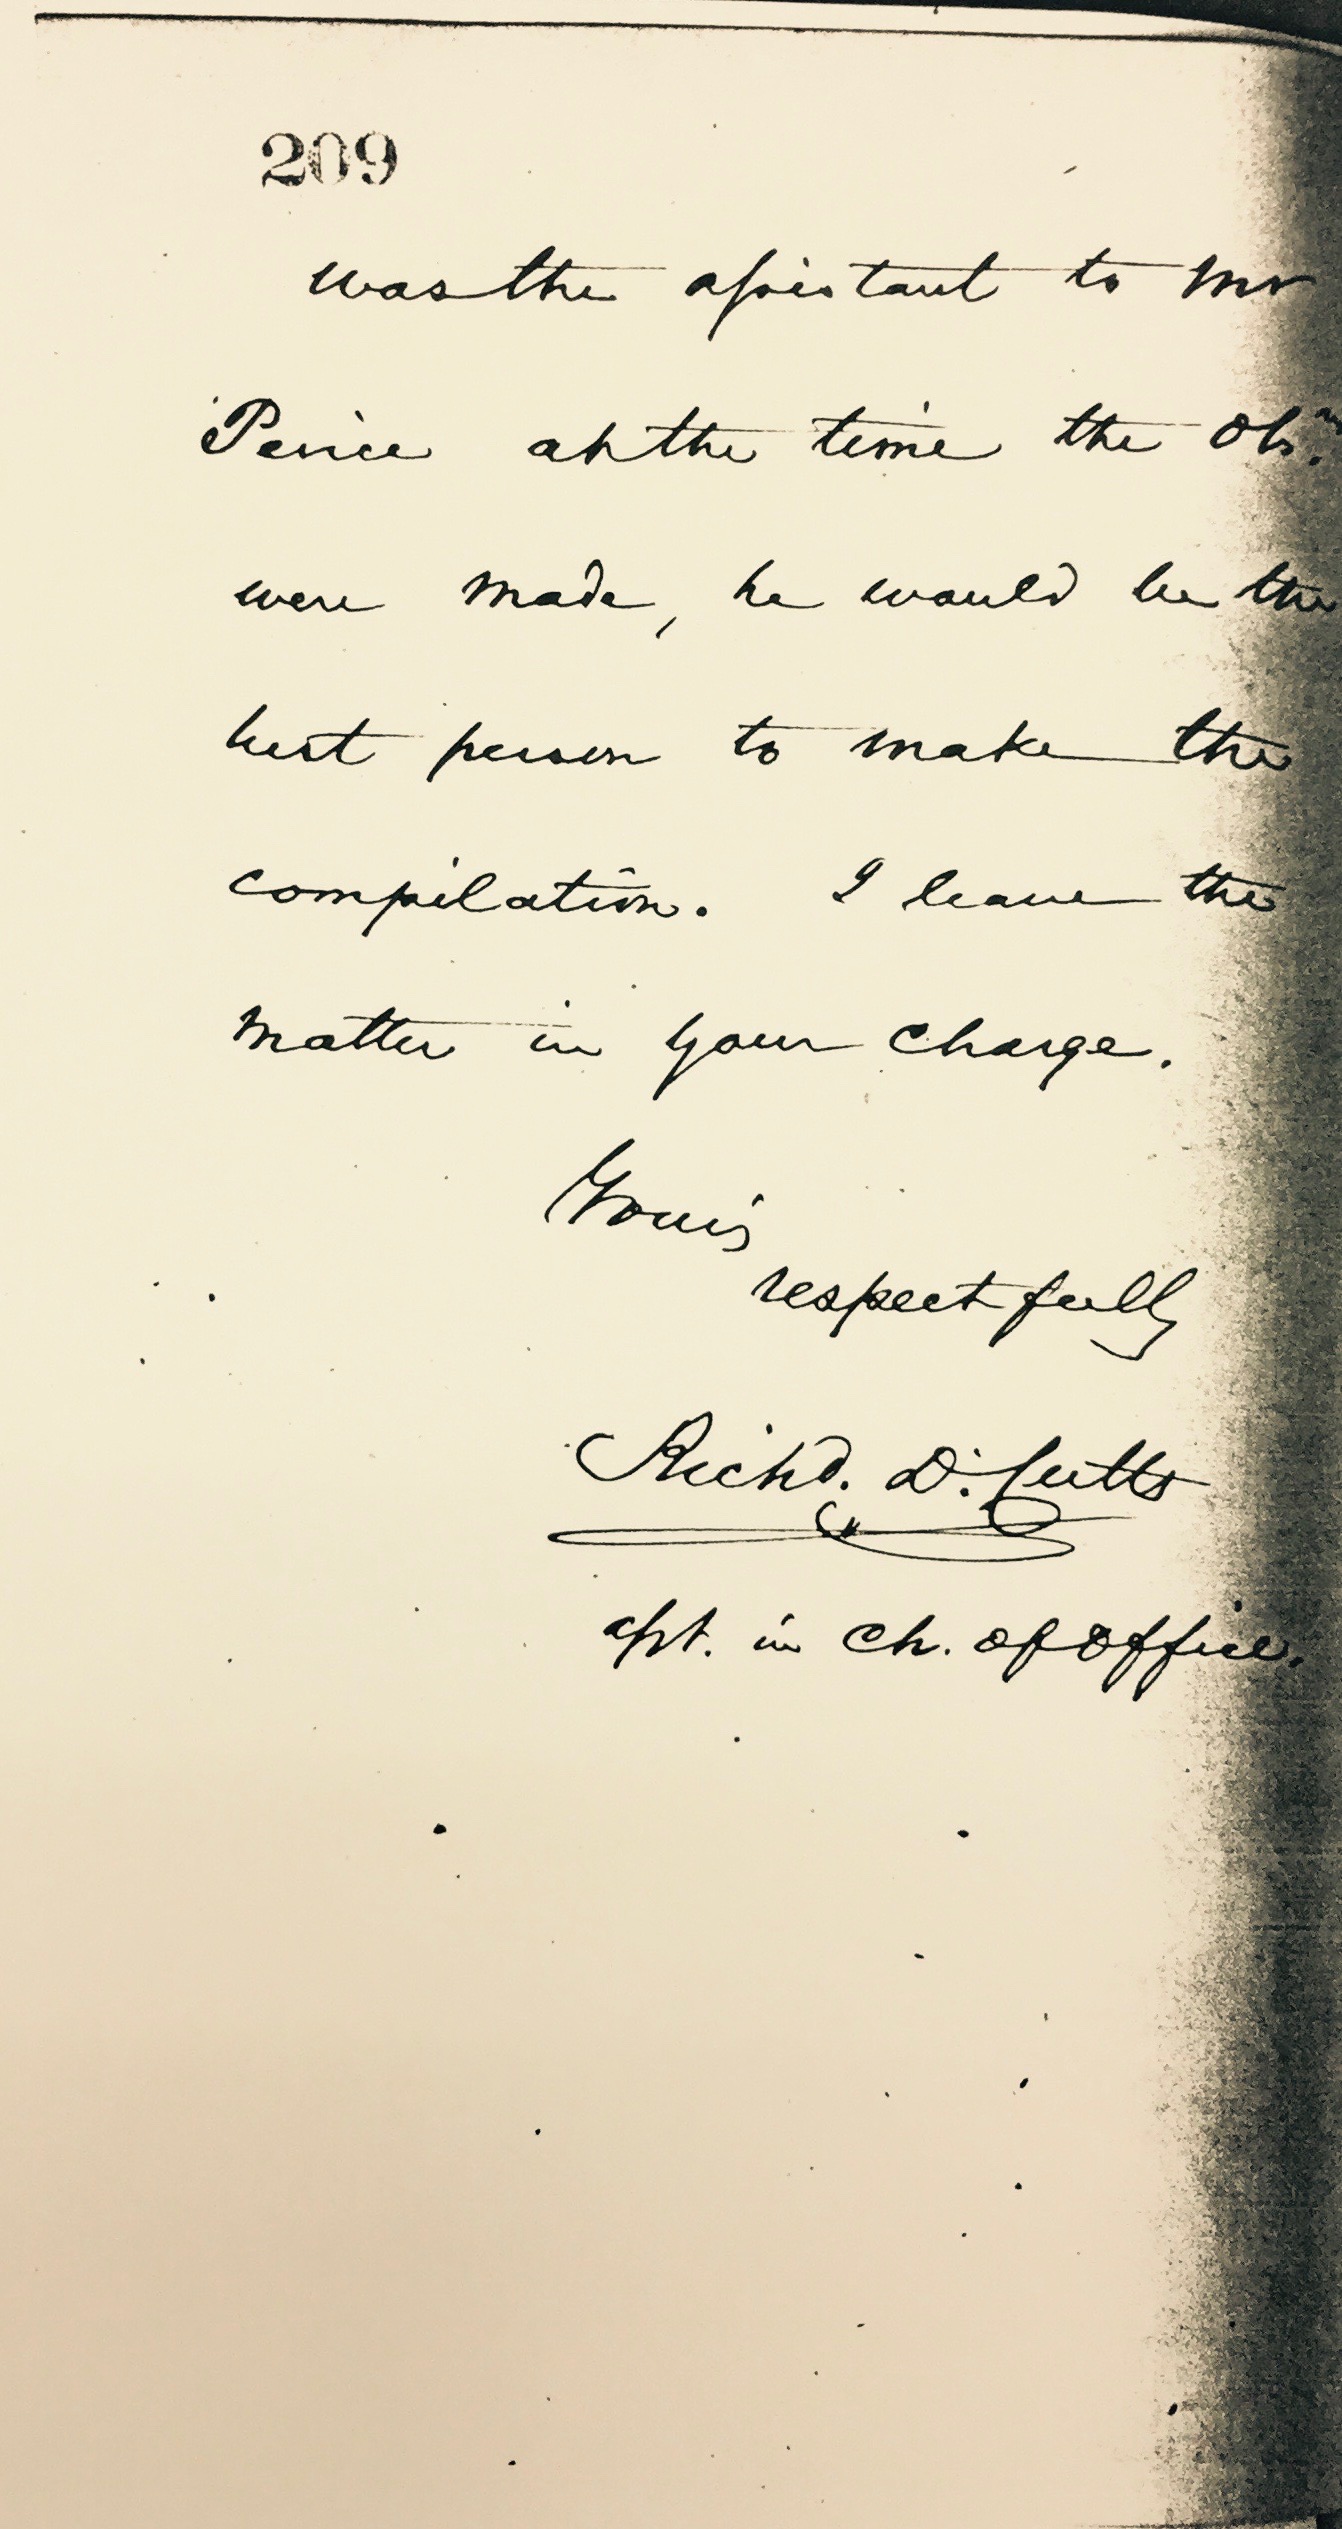 209
was the assistant to Mr
Peirce at the time the Obs.ns
were made, he would be the
best person to make the
compilation. I leave the
matter in your charge.
Yours
respectfully
Richd. D. Cutts
asst. in ch. of office.